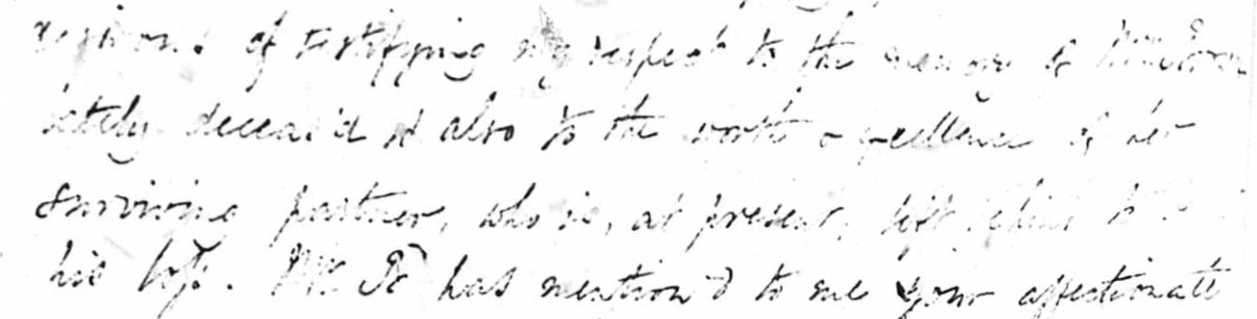 desirous of testifying my respect to the memory of Mrs
lately deceas'd & also to the worth & excellence of her
surviving partner, who is, at present, left behind to
his loss. Mr. E has mention'd to me your affectionate